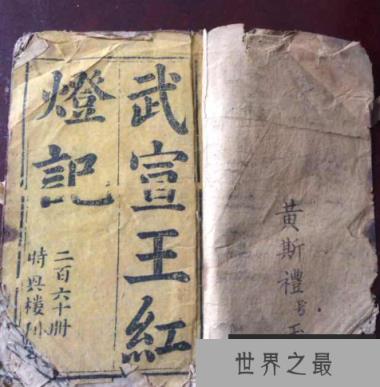 武宣王紅
燈記
二百六十册
時興樓刊
黃斯禮号
世界之最